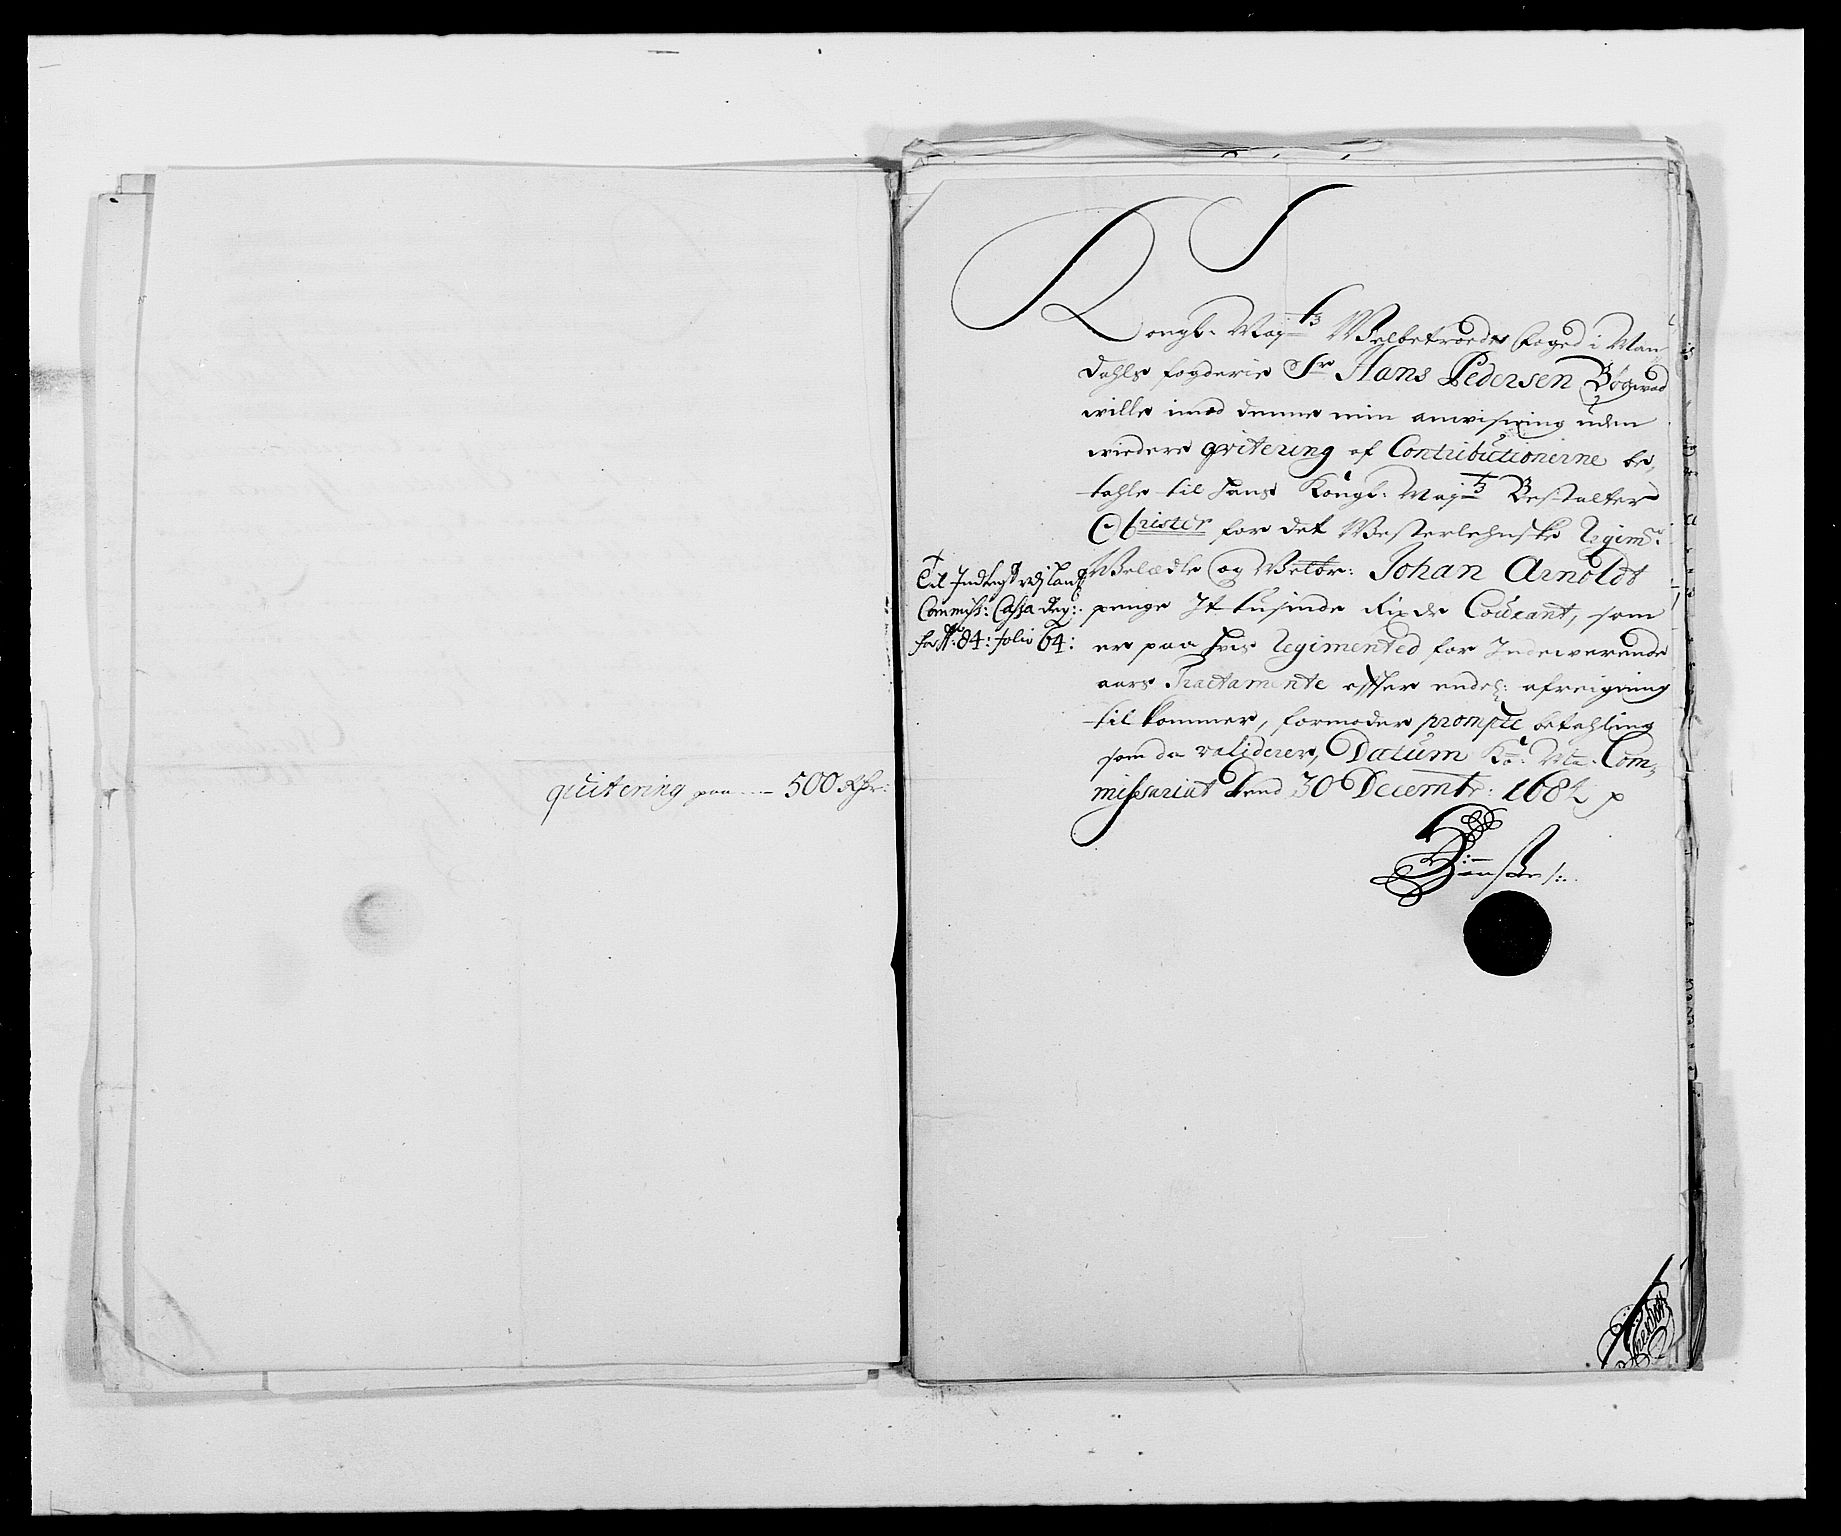 quitering paa ---- 500 Rdr:
Kongl: Maytz Welbetroede foged i Man
dahls fogderie Sr Hans Pedersen Bøgwad
wille imod denne min anwisning uden
widere qvitering af Contributionerne be,
tahle til hans Kongl: Maytz Bestalter
Obrister for det Westerlehnske Regimt:
Welædle og Welbr: Johan Arnoldt
penge It tusinde Rixdr Courant, som
er paa hvis Regimented for Indewerende
aars Tractamente effter endel: afreigning
til kommer, formoder prompte betahling
som da validerer, Datum Commissariat dend 30 Decembr: 1684
Til Indtegt
Commiss: Cassa Reg:
for Ao: 84: folio 64: